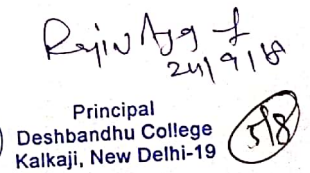 Rajiv Agg
24/9/18
Principal
Deshbandhu College
Kalkaji, New Delhi-19
5/8